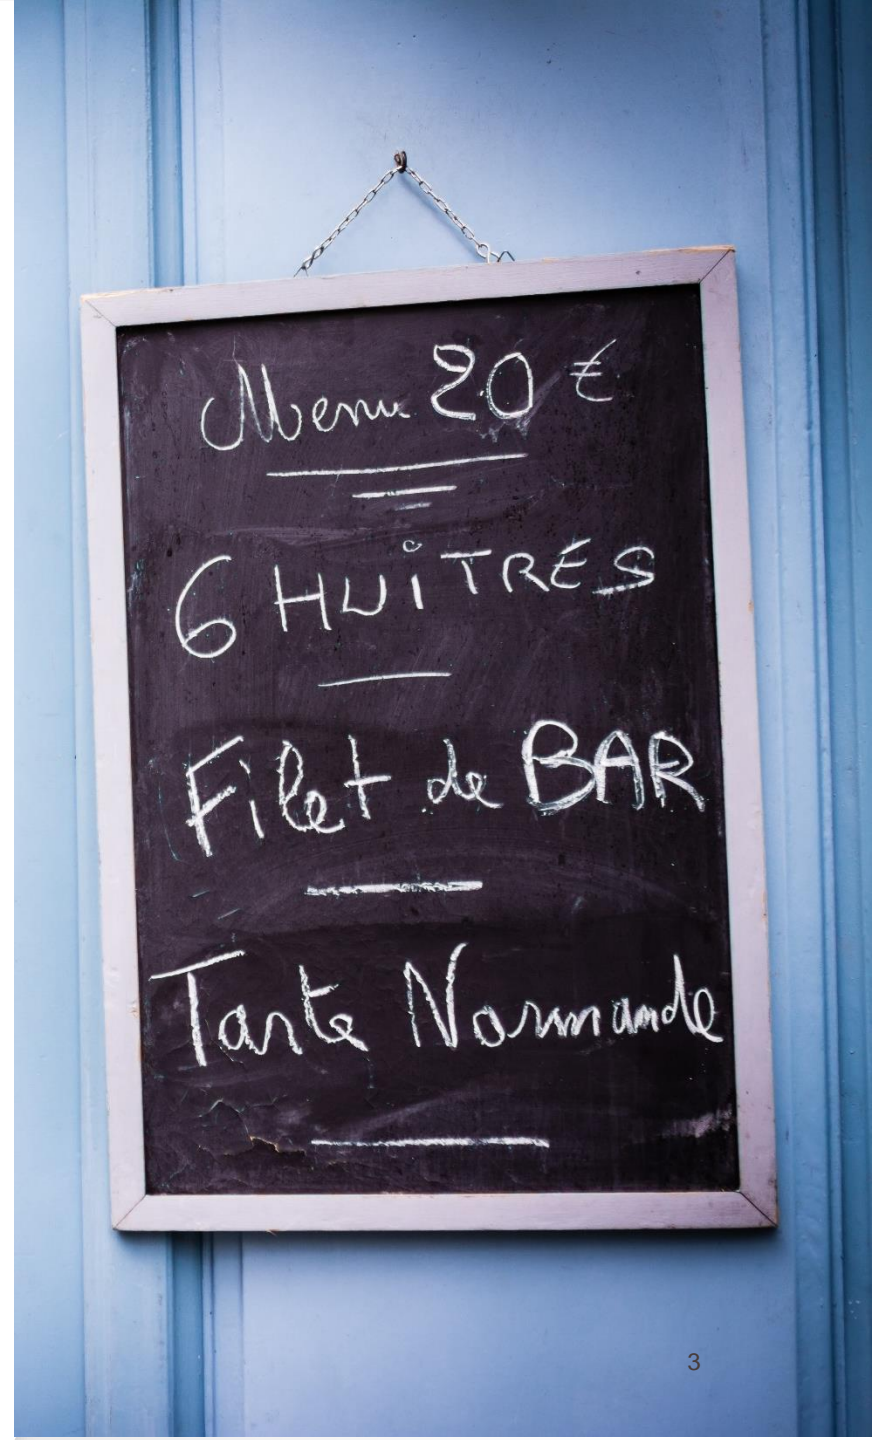 Menu 20 €
6 HUiTRES
Filet de BAR
Tarte Normande
3